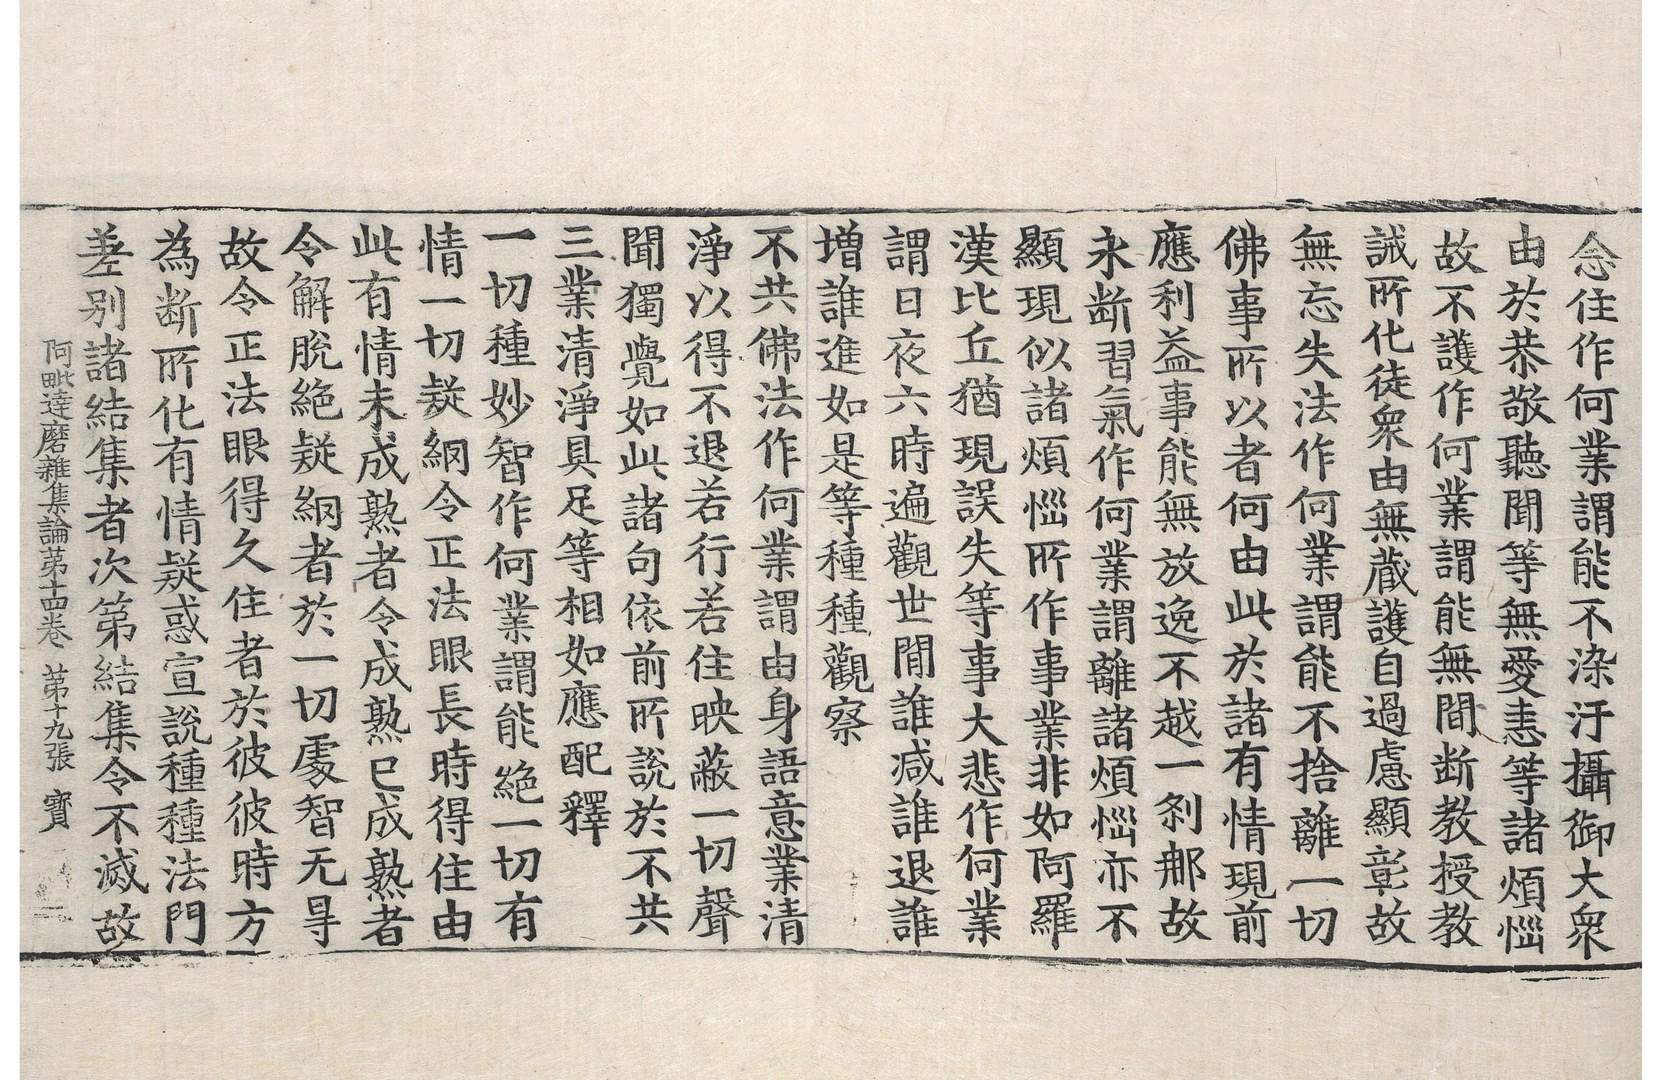 念住作何業謂能不染汙攝御大衆
由於恭敬聽聞等無愛恚等諸煩惱
故不護作何業謂能無間断教授教
誡所化徒衆由無藏護自過慮顯彰故
無忘失法作何業謂能不捨離一切
佛事所以者何由此於諸有情現前
應利益事能無放逸不越一刹那故
永断習氣作何業謂離諸煩惱亦不
顯現似諸煩惱所作事業非如阿羅
漢比丘猶現誤失等事大悲作何業
謂日夜六時遍觀世間誰減誰退誰
增誰進如是等種種觀察
不共佛法作何業謂由身語意業清
淨以得不退若行若住映蔽一切聲
聞獨覺如此諸句依前所說於不共
三業清淨具足等相如應配釋
一切種妙智作何業謂能絶一切有
情一切疑網令正法眼長時得住由
此有情未成熟者令成熟已成熟者
令解脫絶疑網者於一切處智无㝵
故令正法眼得久住者於彼彼時方
為断所化有情疑惑宣說種種法門
差别諸結集者次第結集令不滅故
阿毗達磨雜集論第十四卷 第十九張 寶